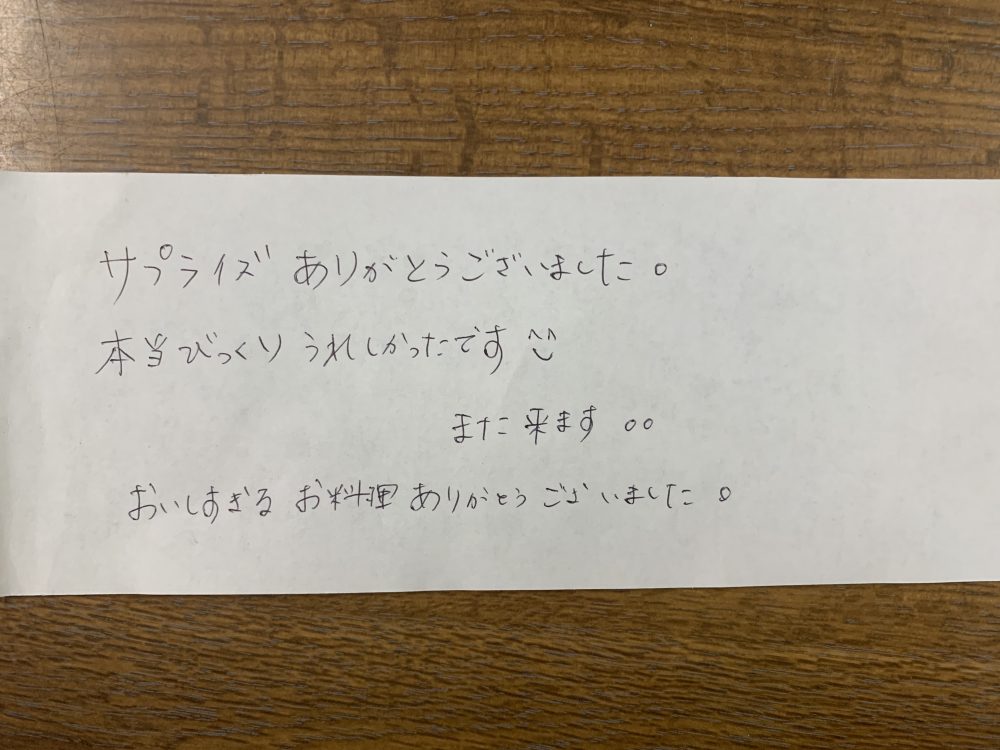 サプライズ ありがとうございました。
本当びっくり うれしかったです ^^
また来ます 。。
おいしすぎる お料理 ありがとうございました。